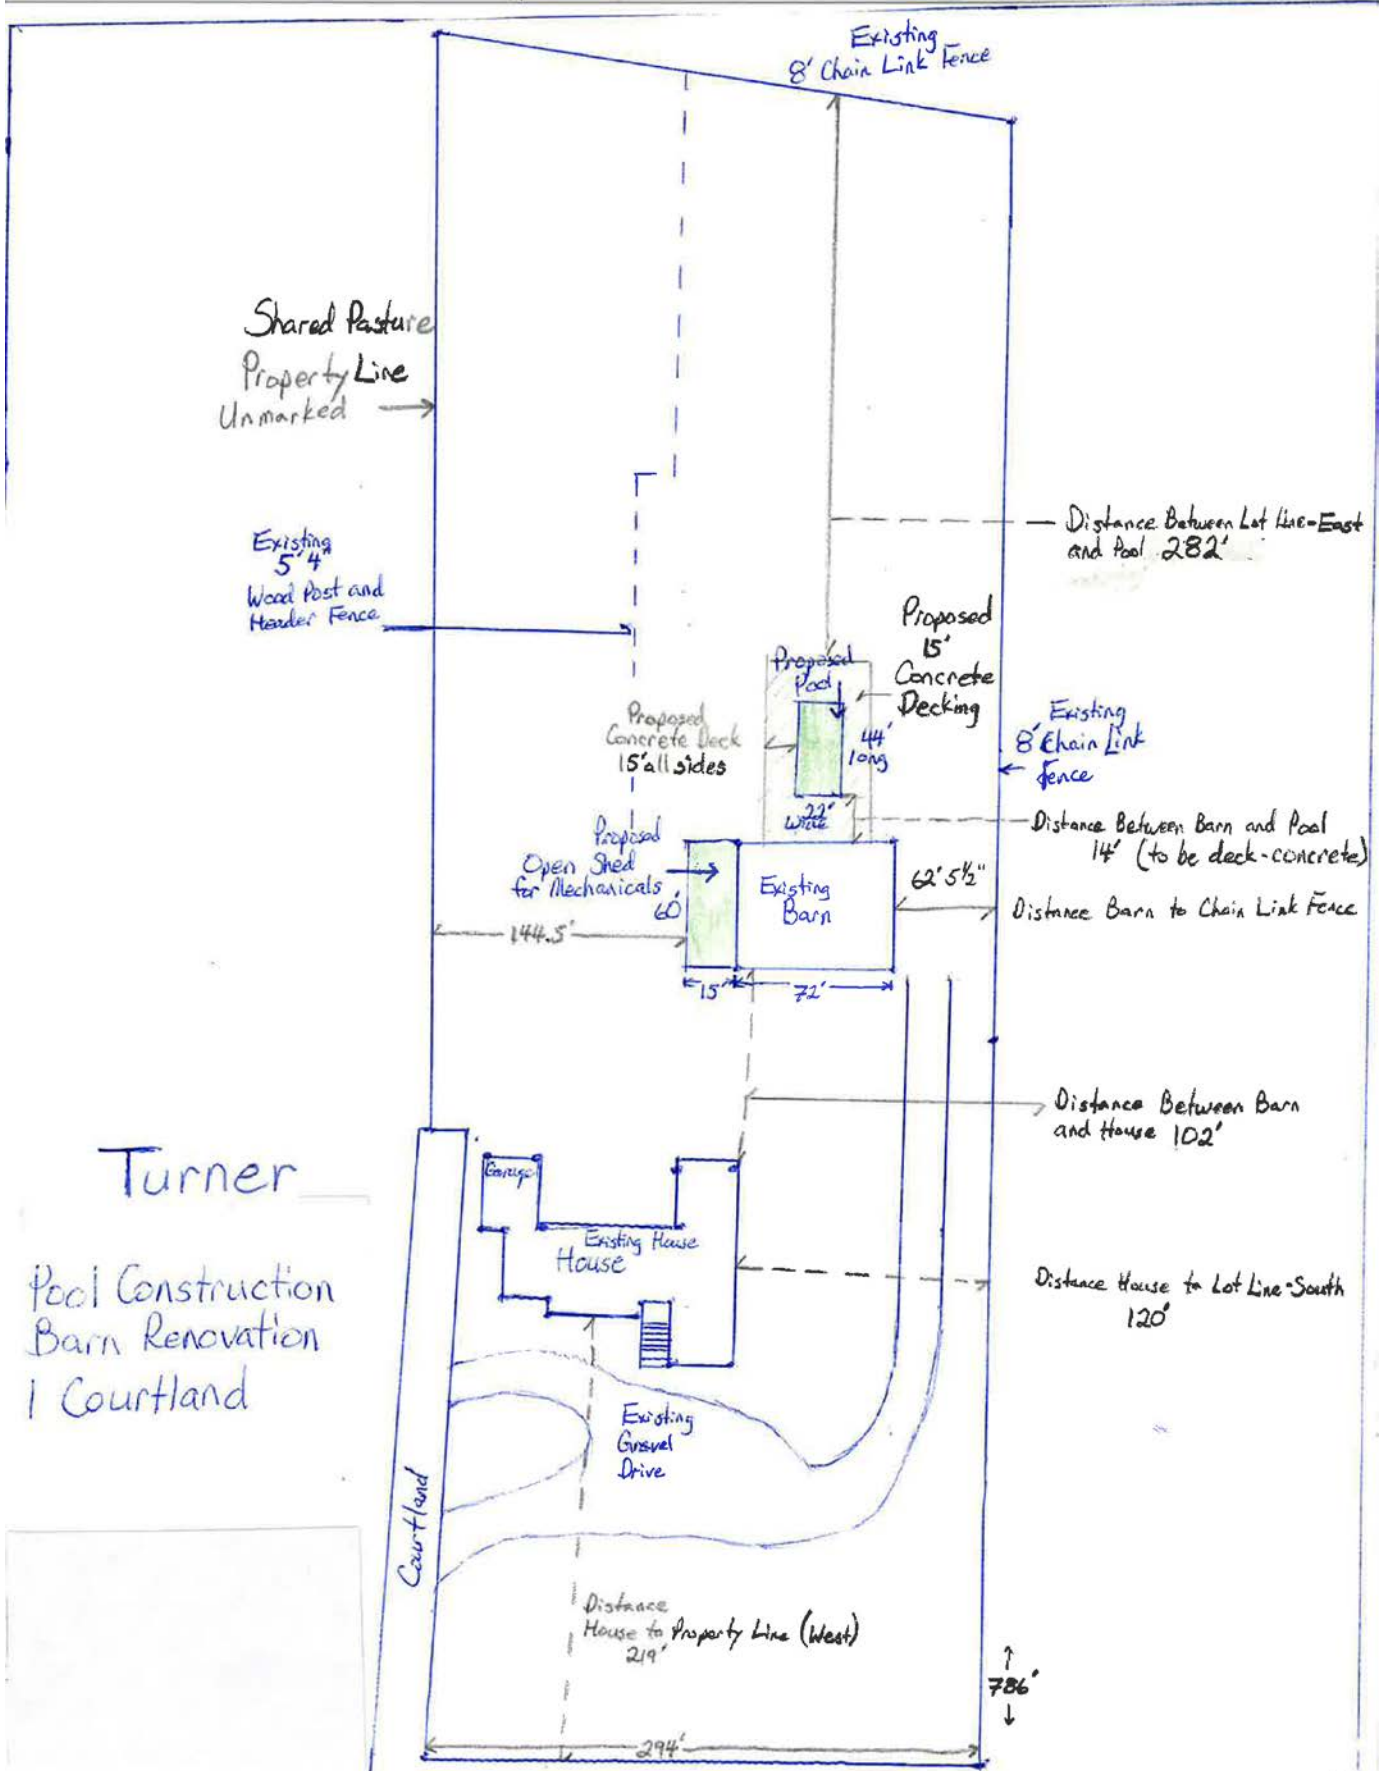 Existing
8' Chain Link Fence
Shared Pasture
Property Line
Unmarked
Existing
5' 4"
Wood Post and
Header Fence
Distance Between Lot Line-East
and Pool 282'
Proposed
15'
Concrete
Decking
Proposed
Pool
44'
long
22'
Wide
Proposed
Concrete Deck
15' all sides
Existing
8' Chain Link
fence
Distance Between Barn and Pool
14' (to be deck-concrete)
Proposed
Open Shed
for Mechanicals
60'
Existing
Barn
62' 5½"
Distance Barn to Chain Link Fence
144.5'
15'
72'
Distance Between Barn
and House 102'
Turner
Pool Construction
Barn Renovation
1 Courtland
Garage
Existing House
House
Distance House to Lot Line-South
120'
Existing
Gravel
Drive
Courtland
Distance
House to Property Line (West)
219'
786'
294'